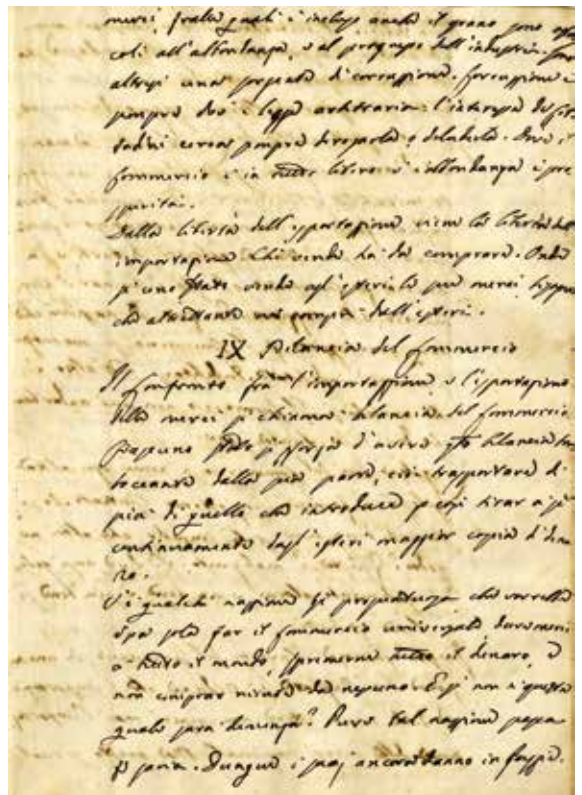 merci, fralle quali è incluso anche il grano sono osta
coli all'abbondanza, e al progresso dell'industria. Sono
altresì una sorgente di corruzione. Corruzione è
sempre dov'è legge arbitraria: l'interesse de' cit
tadini cerca sempre di eluderla. Dove il
Commercio è in tutto libero v'è abbondanza è pro
sperità.
Dalla libertà dell'esportazione viene la libertà dell'
importazione. Chi vende ha da comprare. Onde
s'uno stato vende agl'esteri le sue merci,
che altrettante ne compra dall'esteri.
IX Bilancia del Commercio
Il confronto fra l'importazione, e l'esportazione
delle merci si chiama bilancia del Commercio
Ciascuno stato si sforza d'avere bilancia
dalla sua parte, cioè trasportare di
più di quello che introduce p così tirar a se
continuamente dagl'esteri maggior copia di dena
ro.
V'è qualche nazione sì che vorrebbe
essa sola far il Commercio universale, dare merci
a tutto il mondo, spremerne tutto il denaro, e
non comprar niente da nessuno. E se non è questa
quale sarà demenza? Pure tal nazione passa
p savia. Dunque i ancora danno in